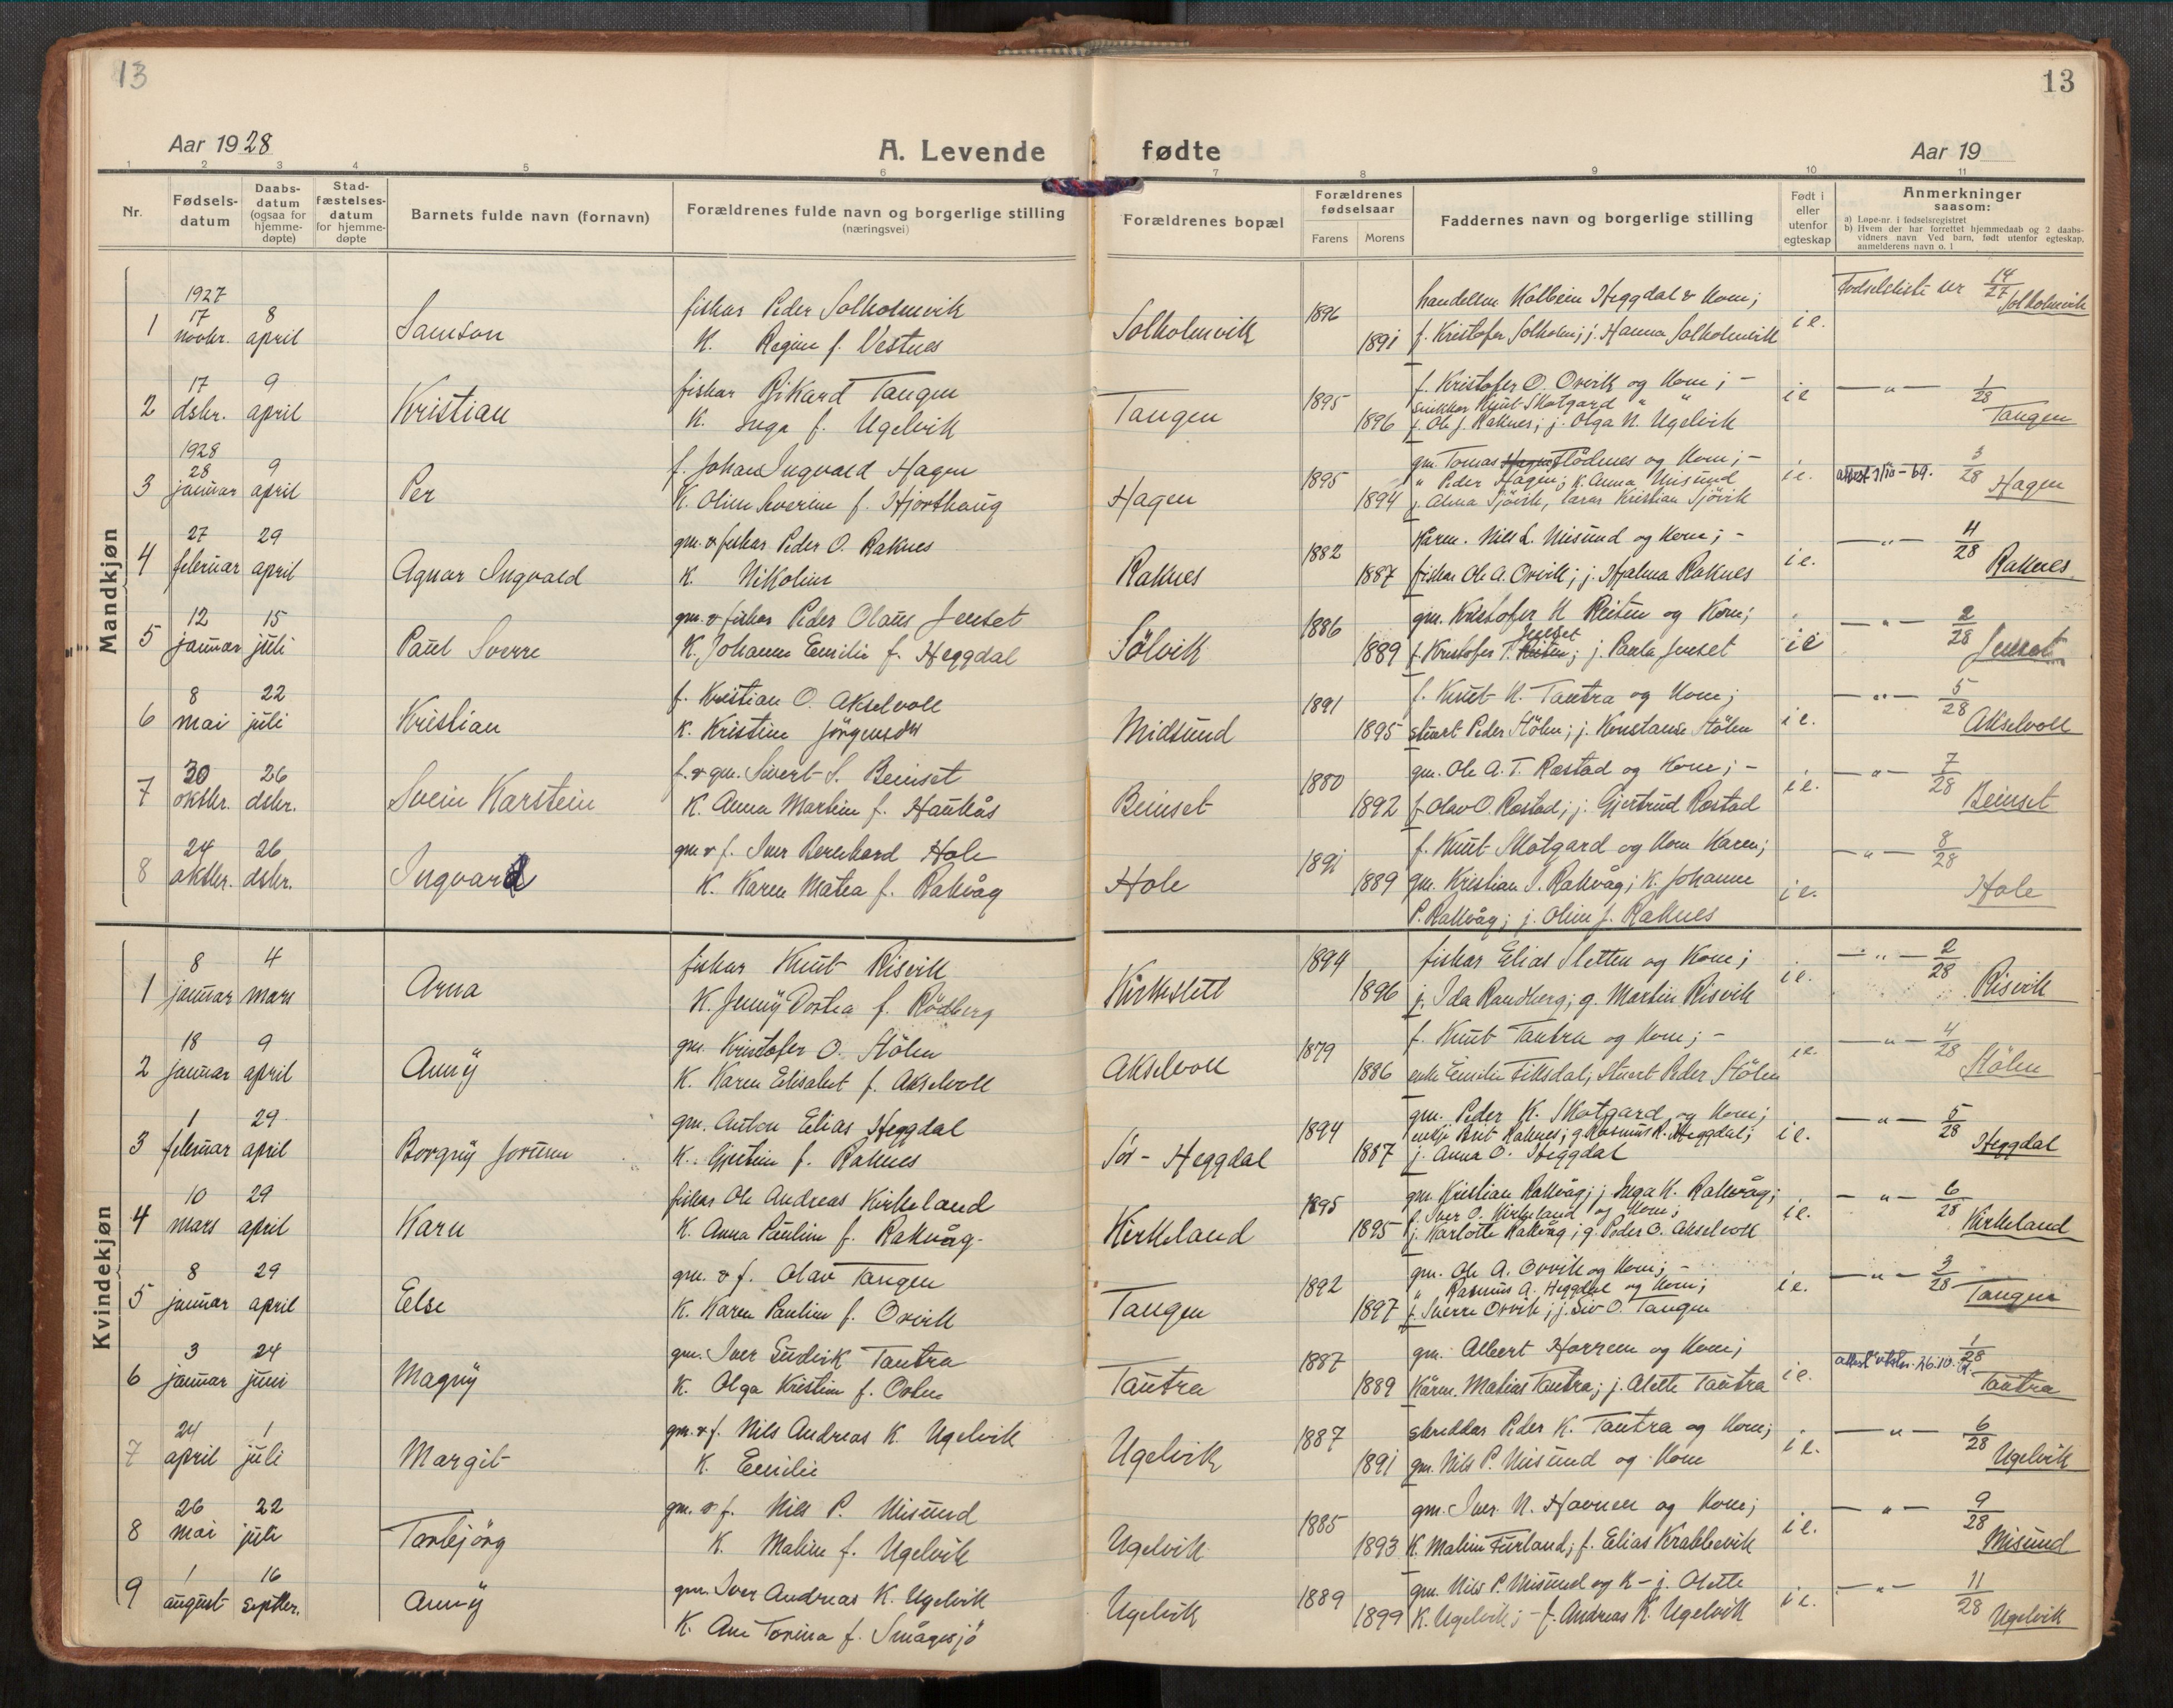 13
13
Aar 1928
A. Levende
fødte
Aar 19
1 2 3 4 5 6 7 8 9 10 11
Nr.
Fødsels-datum
Daabs-datum (ogsaa for hjemme-døpte)
Stad-fæstelses-datum for hjemme-døpte
Barnets fulde navn (fornavn)
Forældrenes fulde navn og borgerlige stilling
(næringsvei)
Forældrenes bopæl
Forældrenes fødselsaar
Farens Morens
Faddernes navn og borgerlige stilling
Født i eller utenfor egteskap
Anmerkninger
saasom:
a) Løpe-nr. i fødselsregistret
b) Hvem der har forrettet hjemmedaab og 2 daabs-vidners navn Ved barn, født utenfor egteskap, anmelderens navn o. l
Mandkjøn
1927
1 17 novbr. 8 april Samson
fiskar Peder Solholmvik
K. Regine f. Vestnes
Solholmvik 1896 1891
handelsm Kolbein Heggdal & Kone;
f. Kristofer Solholm; j. Hanna Solholmvik
i e. Fødselsliste nr 14/27 Solholmvik
2 17 dsbr. 9 april Kristian
fiskar Rikard Tangen
K. Inga f. Ugelvik
Tangen 1895 1896
f. Kristofer O. Orvik og Kone; -
snikkar Knut Skotgard " "
f. Ole J. Raknes; j. Olga N. Ugelvik
i e — " — 1/28 Tangen
1928
3 28 januar 9 april Per
f. Johan Ingvald Hagen
K. Oline Severine f. Hjorthaug
Hagen 1895 1894
gm. Tomas Hagen Flödnes og Kone; -
" Peder Hagen; K. Anna Misund
j. Alma Sjövik, lærar Kristian Sjövik
i e. attest 7/10-69. 3/28 Hagen
4 27 februar 29 april Agnar Ingvald
gm. & fiskar Peder O. Raknes
K. Nikoline
Raknes 1882 1887
Kårm. Nils L. Misund og Kone; -
fiskar Ole A. Orvik; j. Hjalma Raknes
i e. — " — 4/28 Raknes
5 12 januar 15 juli Paul Sverre
gm. & fiskar Peder Olaus Jenset
K. Johanne Emilie f. Heggdal
Sölvik 1886 1889
gm. Kristofer K Reiten og Kone;
Jenset
f. Kristofer P. Reiten; j. Paula Jenset
i e — " — 2/28 Jenset
6 8 mai 22 juli Kristian
f. Kristian O. Akselvoll
K. Kristine Jörgensdtr
Midsund 1891 1895
f. Knut K. Tautra og Kone;
stuert Peder Stölen; j. Konstanse Stölen
i e. — " — 5/28 Akselvoll
7 30 oktbr. 26 dsbr. Svein Karstein
f. & gm. Sivert S. Beinset
K. Anna Martine f. Haukås
Beinset 1880 1892
gm. Ole A. T. Rostad og Kone; -
f Olav O. Rostad; j. Gjertrud Rostad
i e. — " — 7/28 Beinset
8 24 oktbr. 26 dsbr. Ingvard
gm & f. Iver Bernhard Hole
K. Karen Matea f. Rakvåg
Hole 1891 1889
f. Knut Skotgard og Kone Karen;
gm. Kristian I. Rakvåg; K. Johanne
P. Rakvåg; j. Oline J. Raknes
i e. — " — 8/28 Hole
Kvindekjøn
1 8 januar 4 mars Arna
fiskar Knut Risvik
K. Jenny Dortea f. Rödberg
Kirkeslett 1894 1896
fiskar Elias Sletten og Kone;
j. Ida Randberg; g. Martin Risvik
i e. — " — 2/28 Risvik
2 18 januar 9 april Anny
gm. Kristofer O. Stölen
K. Karen Elisabet f. Akselvoll
Akselvoll 1879 1886
f. Knut Tautra og Kone; -
enke Emilie Fillsdal, Stuert Peder Stölen
i e. — " — 4/28 Stölen
3 1 februar 29 april Borgny Jorunn
gm. Anton Elias Heggdal
K. Gjertine f. Raknes
Sör-Heggdal 1894 1887
gm. Peder K. Skotgard og Kone;
enkje Brit Raknes; g. Rasmus R. Heggdal;
j. Anna O. Heggdal
i e. — " — 5/28 Heggdal
4 10 mars 29 april Karn
fiskar Ole Andreas Kirkeland
K. Anna Pauline f. Rakvåg.
Kirkeland 1895 1895
gm. Kristian Rakvåg; j Inga K. Rakvåg;
f. Iver O. Kirkeland og Kone;
j. Karlotte Rakvåg; g. Peder O. Akselvoll
i e. — " — 6/28 Kirkeland
5 8 januar 29 april Else
gm. & f. Olav Tangen
K. Karen Pauline f. Orvik
Tangen 1892 1897
gm. Ole A. Orvik og Kone; -
" Rasmus A. Heggdal og Kone;
f. Sverre Orvik; j. Liv O. Tangen
i e. — " — 3/28 Tangen
6 3 januar 24 juni Magny
gm. Iver Gudvik Tautra
K. Olga Kristine f. Oshn
Tautra 1887 1889
gm. Albert Horrem og Kone;
Kårm. Matias Tautra; j. Alette Tautra
i e. attest utskr. 26.10. 1/28 Tautra
7 24 april 1 juli Margit
gm. & f. Nils Andreas K. Ugelvik
K. Emilie
Ugelvik 1887 1891
skreddar Peder K. Tautra og Kone;
gm. Nils P. Misund og Kone
i e. — " — 6/28 Ugelvik
8 26 mai 22 juli Torbjörg
gm. & f. Nils P. Misund
K. Maline f. Ugelvik
Ugelvik 1885 1893
gm. Iver N. Hovnen og Kone;
K. Maline Furland; f. Elias Krabbevik
i e. — " — 9/28 Misund
9 1 august 16 septbr. Anny
gm. Iver Andreas K. Ugelvik
K. Ane Torina f. Smågesjö
Ugelvik 1889 1899
gm. Nils P. Misund og K - j. Olette
K. Ugelvik; - f. Andreas K. Ugelvik
i e. — " — 11/28 Ugelvik